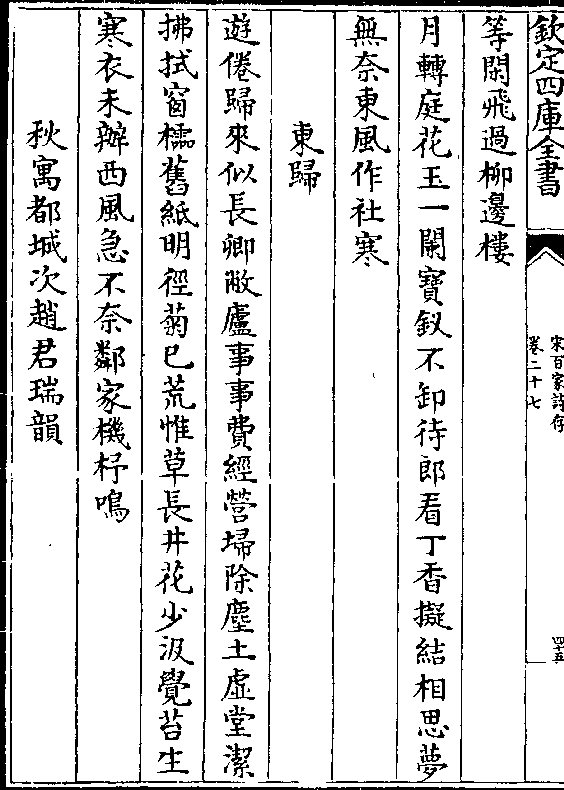 欽定四庫全書
宋百家詩存
卷二十七
四十五
等閑飛過柳邊樓
月轉庭花玉一闌寶釵不卸待郎看丁香擬結相思夢
無奈東風作社寒
東歸
遊倦歸來似長卿敝廬事事費經營埽除塵土虛堂潔
拂拭窗櫺舊紙明徑菊已荒惟草長井花少汲覺苔生
寒衣未辦西風急不奈鄰家機杼鳴
秋寓都城次趙君瑞韻